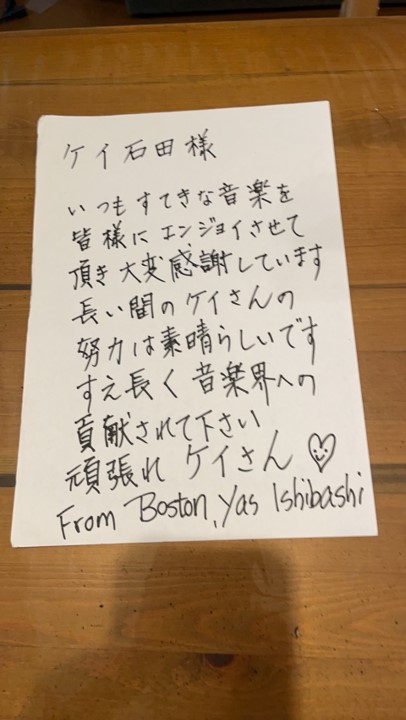 ケイ石田様
いつもすてきな音楽を
皆様にエンジョイさせて
頂き大変感謝しています
長い間のケイさんの
努力は素晴らしいです
すえ長く音楽界への
貢献されて下さい
頑張れ ケイさん
From Boston, Yas Ishibashi